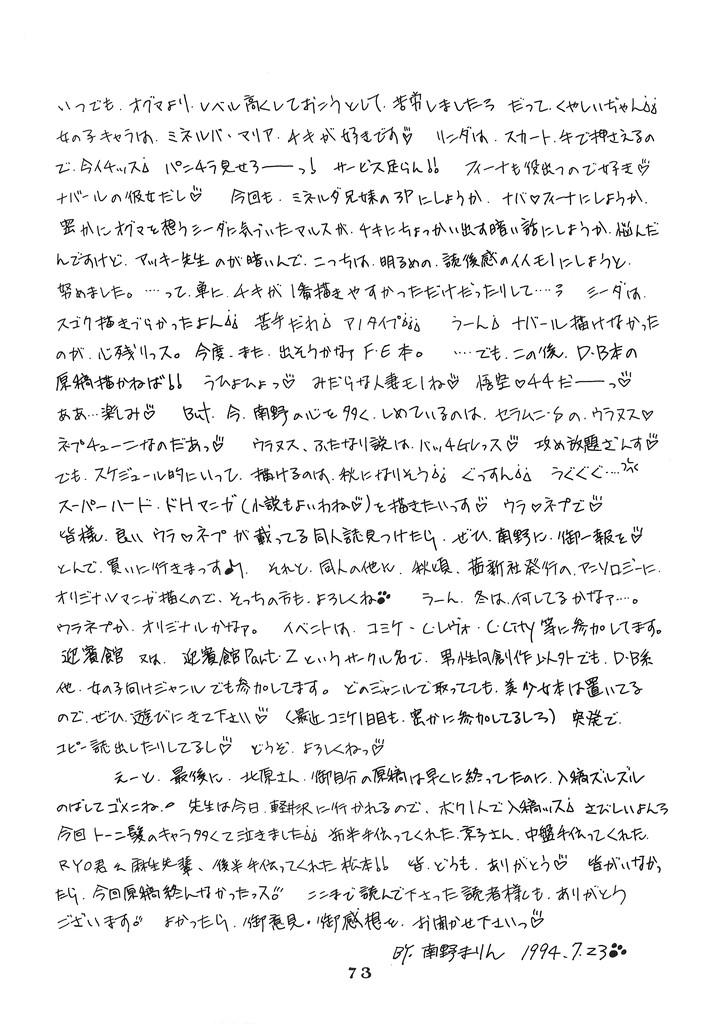 いつでも、オグマより、レベル高くしておこうとして、苦労しましたろ だって、くやしいぢゃん♪♪
女の子キャラは、ミネルバ・マリア・チキが好きです♡ リンダは、スカート、手で押さえるの
で、今イチッス♪ パンチラ見せろーーっ! サービス足らん!! フィーナも役立つので好き♡
ナバールの彼女だし♡ 今回も、ミネルダ兄妹の3Pにしようか、ナバ♡フィーナにしようか、
密かにオグマを想うシーダに気づいたマルスが、チキにちょっかい出す暗い話にしようか、悩んだ
んですけど、アッキー先生のが暗いんで、こっちは、明るめの、読後感のイイモノにしようと、
努めました。…って、単に、チキが1番描きやすかっただけだったりして…ろ シーダは、
スゴク描きづらかったよん♪♪ 苦手だわ♪ アノタイプ♪♪♪ うーん♪ ナバール描けなかった
のが、心残りっス。今度、また、出そうかなァF・E本。 …でも、この後、D・B本の
原稿描かねば!! うひょひょっ♡ みだらな人妻モノね♡ 悟空♡チチだーーっ♡
ああ…楽しみ♡ But、今、南野の心を多く、しめているのは、セラムン・Sの、ウラヌス♡
ネプチューンなのだあっ♡ ウラヌス、ふたなり説は、バッチGレっス♡ 攻め放題ざんす♡
でも、スケジュール的にいって、描けるのは、秋になりそう♪♪ ぐっすん♪♪ うぐぐぐ…
スーパーハード・ドHマンガ(小説もよいわね♡)を描きたいっす♡ ウラ♡ネプで♡
皆様、良い ウラ♡ネプが載ってる同人誌見つけたら、ぜひ、南野に、御一報を♡
とんで、買いに行きまっす♪、 それと、同人の他に、秋頃、茜新社発行の、アンソロジーに、
オリジナルマンガ描くので、そっちの方も、よろしくね うーん、冬は、何してるかなァ…。
ウラネプか、オリジナルかなァ。 イベントは、コミケ・C・レヴォ・C・City等に参加してます。
迎賓館 又は、迎賓館Part・2というサークル名で、男性向創作以外でも、D・B系
他、女の子向けジャンルでも参加してます。どのジャンルで取ってても、美少女本は置いてる
ので、ぜひ、遊びにきて下さい♡ (最近コミケ1日目も、密かに参加してるしろ) 突発で、
コピー誌出したりしてるし♡ どうぞ、よろしくねっ♡
えーと、最後に、北原さん、御自分の原稿は早くに終ってたのに、入稿ズルズル
のばしてゴメンね。 先生は今日、軽井沢に行かれるので、ボク1人で入稿ッス♪ さびしいよんろ
今回トーン髪のキャラ多くて泣きました♪♪ 前半手伝ってくれた、京子さん、中盤手伝ってくれた、
RYO君&麻生先輩、後半手伝ってくれた松本!! 皆、どうも、ありがとう♡ 皆がいなかっ
たら、今回原稿終んなかったっス!! ここまで読んで下さった読者様にも、ありがとう
ございます!! よかったら、御意見・御感想を、お聞かせ下さいっ♡
BY. 南野まりん 1994.7.23
73